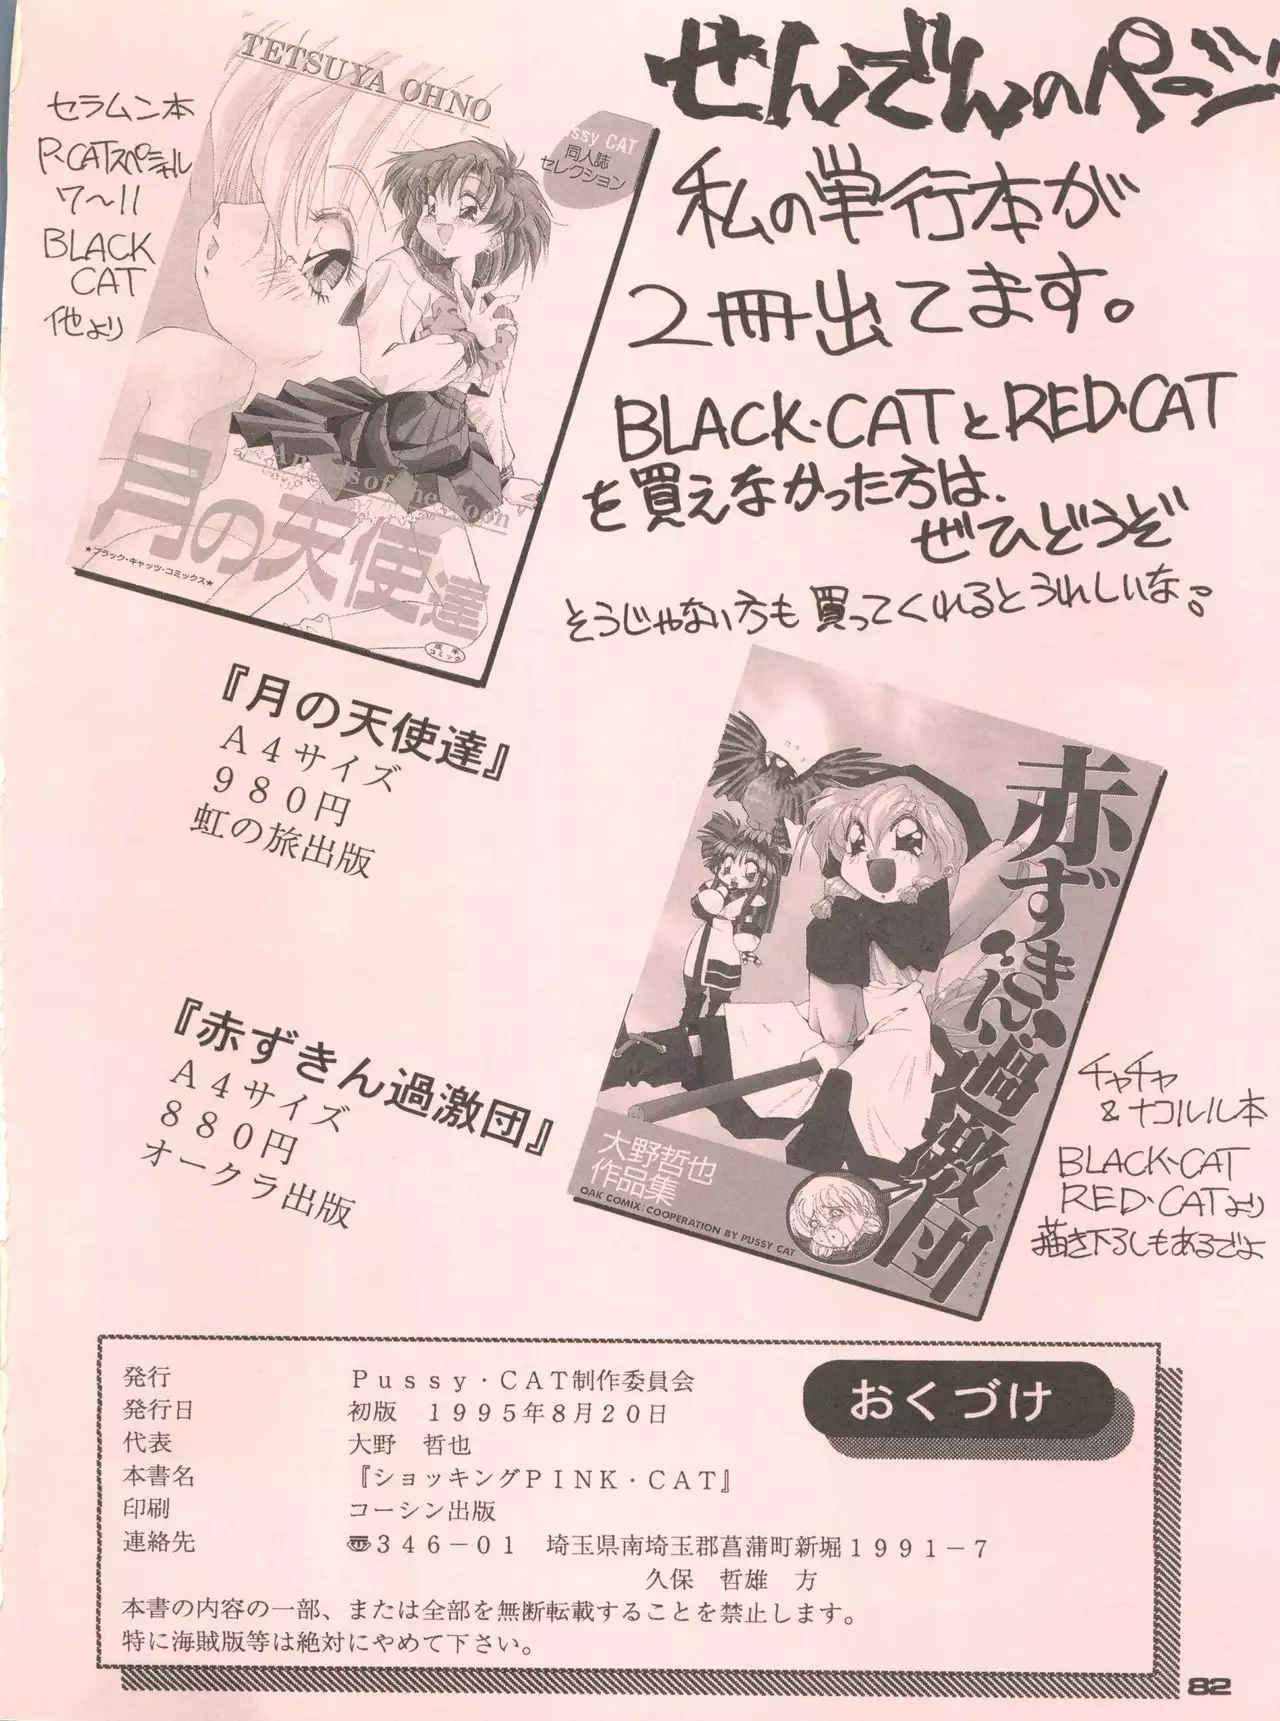 せんでんのページ
私の単行本が
2冊出てます。
BLACK・CATとRED・CAT
を買えなかった方は、
ぜひどうぞ
そうじゃない方も買ってくれるとうれしいな♪
セラムン本
P・CATスペシャル
7〜11
BLACK
CAT
他より
TETSUYA OHNO
ssy CAT
同人誌
セレクション
Angels of the Moon
月の天使達
★ブラック・キャッツ・コミックス★
成年
コミック
『月の天使達』
A4サイズ
980円
虹の旅出版
赤ずきん過激団
大野哲也
作品集
OAK COMIX COOPERATION BY PUSSY CAT
『赤ずきん過激団』
A4サイズ
880円
オークラ出版
チャチャ
&ナコルル本
BLACK・CAT
RED・CATより
描き下ろしもあるでよ
おくづけ
発行 Pussy・CAT制作委員会
発行日 初版 1995年8月20日
代表 大野 哲也
本書名 『ショッキングPINK・CAT』
印刷 コーシン出版
連絡先 〠346－01 埼玉県南埼玉郡菖蒲町新堀1991－7
久保 哲雄 方
本書の内容の一部、または全部を無断転載することを禁止します。
特に海賊版等は絶対にやめて下さい。
82